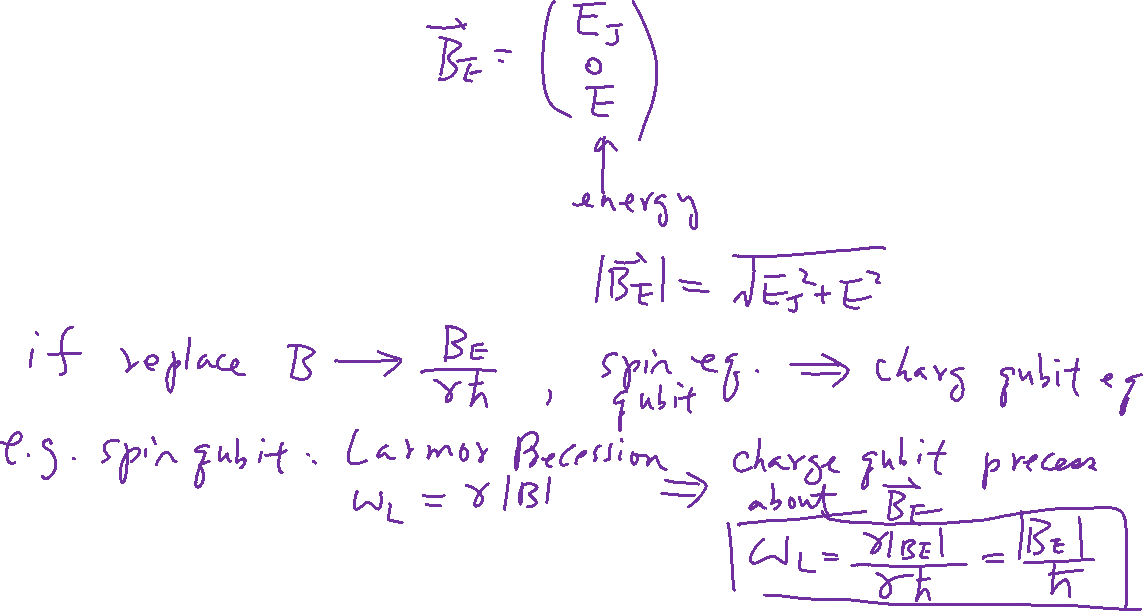 $\vec{B_E} = \begin{pmatrix} E_J \\ 0 \\ E \end{pmatrix}$
↑
energy
$|\vec{B_E}| = \sqrt{E_J^2 + E^2}$
if replace $B \longrightarrow \frac{B_E}{\gamma \hbar}$, spin qubit eq. ⟹ charg qubit eq
e.g. spin qubit: Larmor Recession ⟹ charge qubit precess
$\omega_L = \gamma |B|$ about $\vec{B_E}$
$\omega_L = \frac{\gamma |B_E|}{\gamma \hbar} = \frac{|B_E|}{\hbar}$